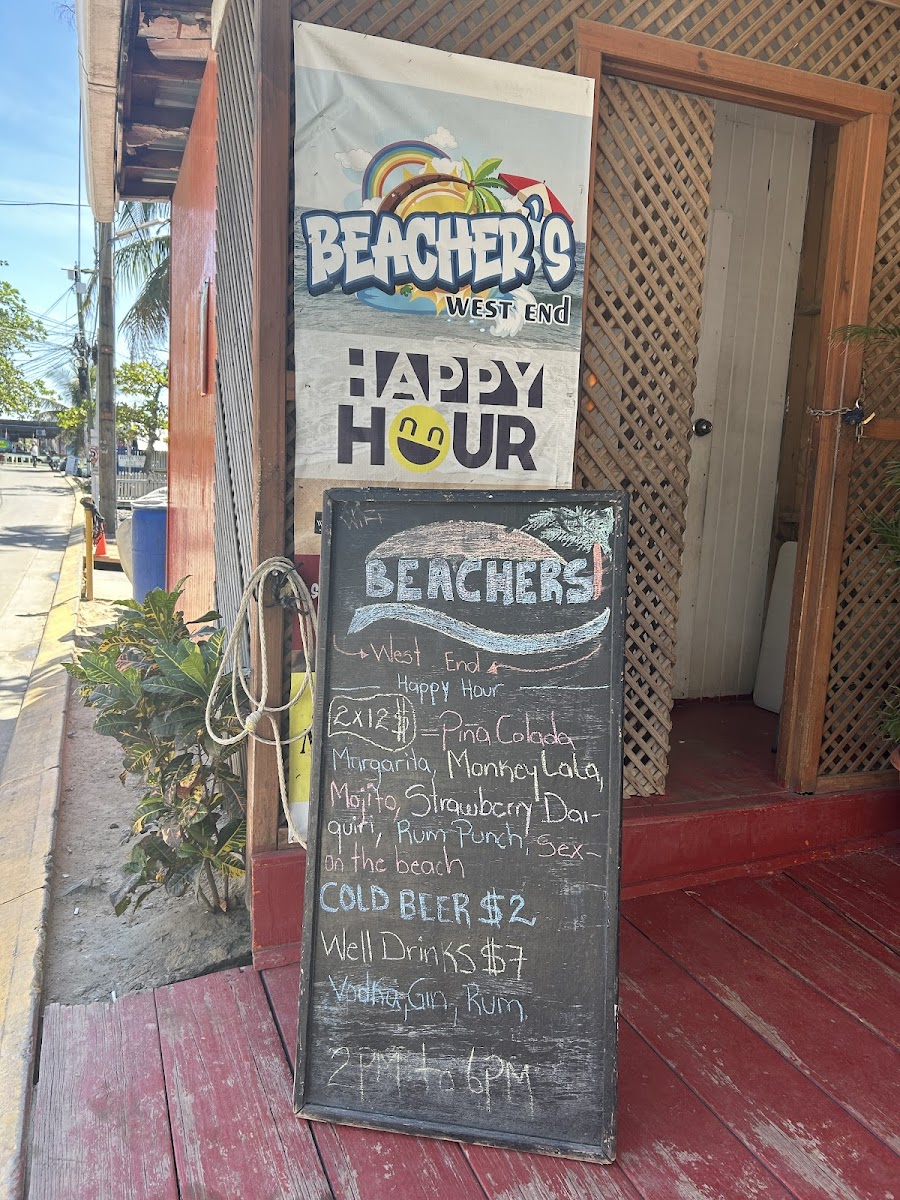 BEACHER'S
WEST END
HAPPY
HOUR
WiFi
BEACHERS
West End
Happy Hour
2x12$ - Piña Colada
Margarita, Monkey Lala,
Mojito, Strawberry Dai-
quiri, Rum Punch, sex-
on the beach
COLD BEER $2
Well Drinks $7
Vodka, Gin, Rum,
2PM to 6PM